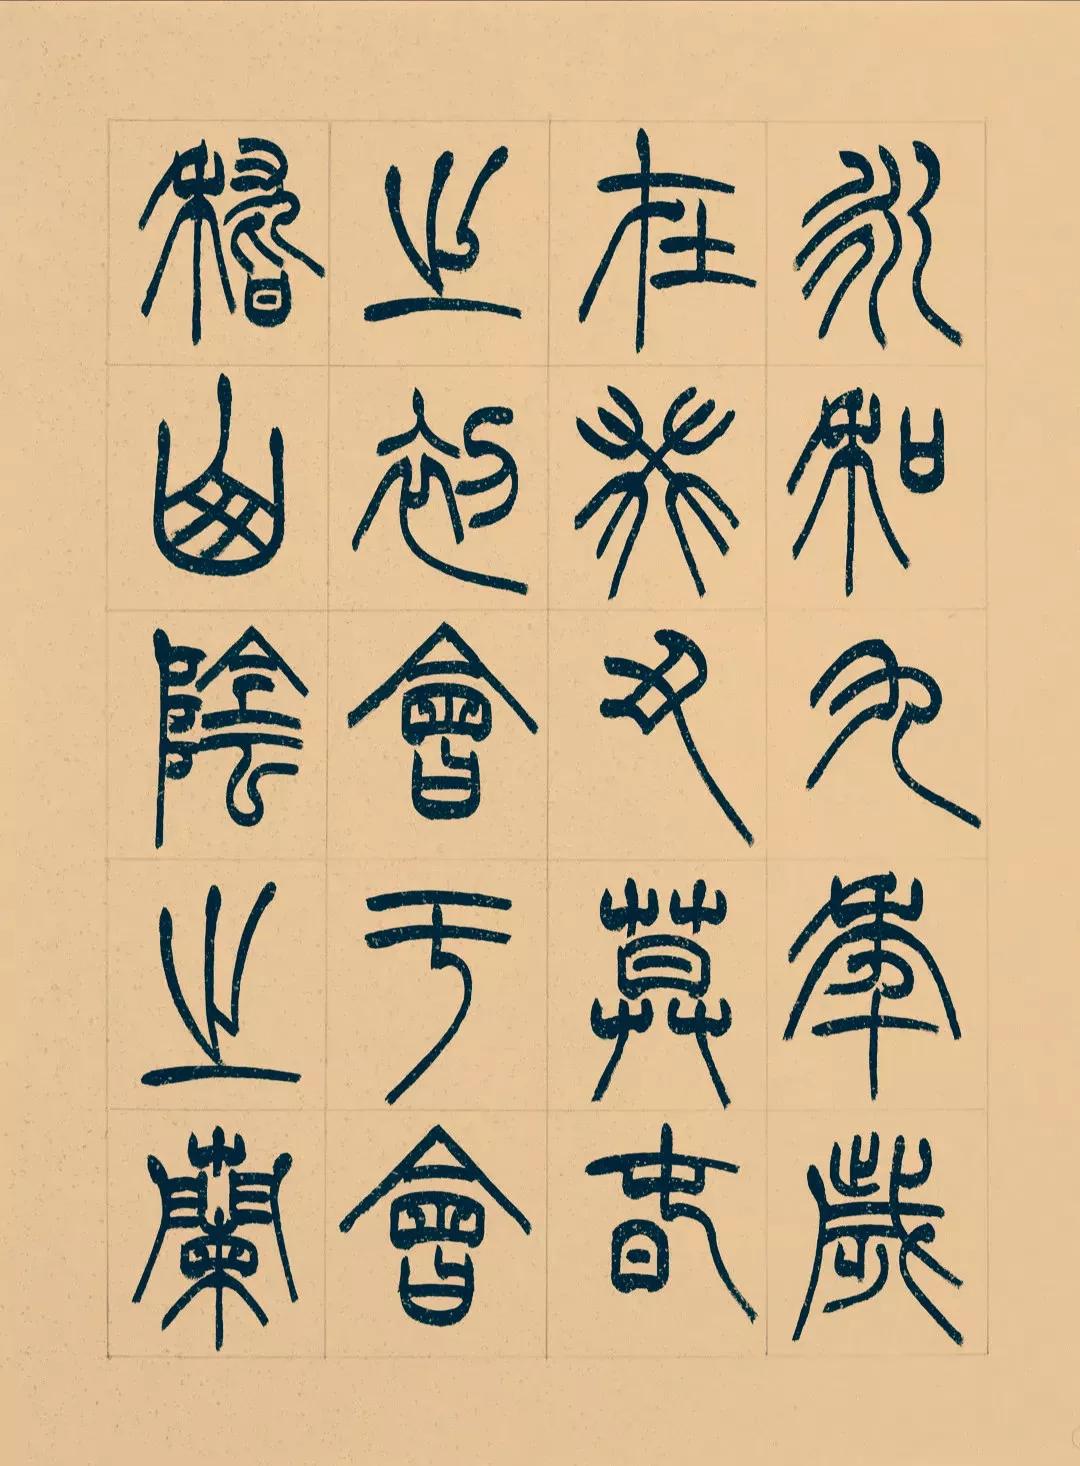 永和九年歲
在癸丑莫春
之初會于會
稽山陰之蘭